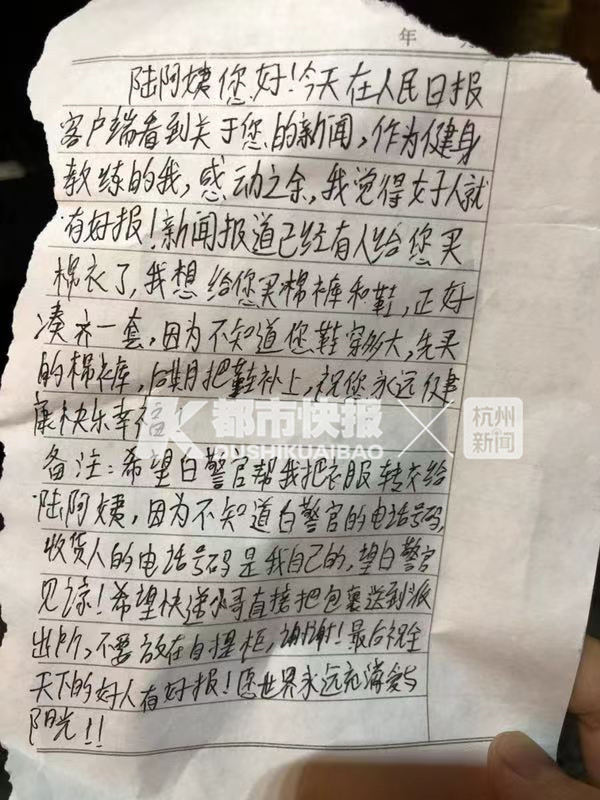 年 月
陆阿姨您好!今天在人民日报
客户端看到关于您的新闻,作为健身
教练的我,感动之余,我觉得好人就
有好报!新闻报道已经有人给您买
棉衣了,我想给您买棉裤和鞋,正好
凑齐一套,因为不知道您鞋穿多大,先买
的棉裤,后期把鞋补上,祝您永远健
康快乐幸福
都市快报
DUSHIKUAIBAO
杭州
新闻
备注:希望白警官帮我把衣服转交给
陆阿姨,因为不知道白警官的电话号码,
收货人的电话号码是我自己的,望白警官
见谅!希望快递小哥直接把包裹送到派
出所,不要放在自提柜,谢谢!最后祝全
天下的好人有好报!愿世界永远充满爱与
阳光!!